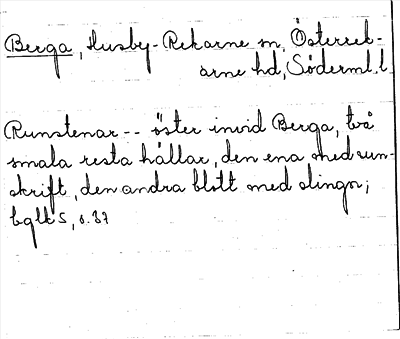 Berga, Husby-Rekarne sn, Österrek-
arne hd, Söderml. l.
Runstenar -- öster invid Berga, två
smala resta hällar, den ena med run-
skrift, den andra blott med slingor;
bglk 5, s. 37